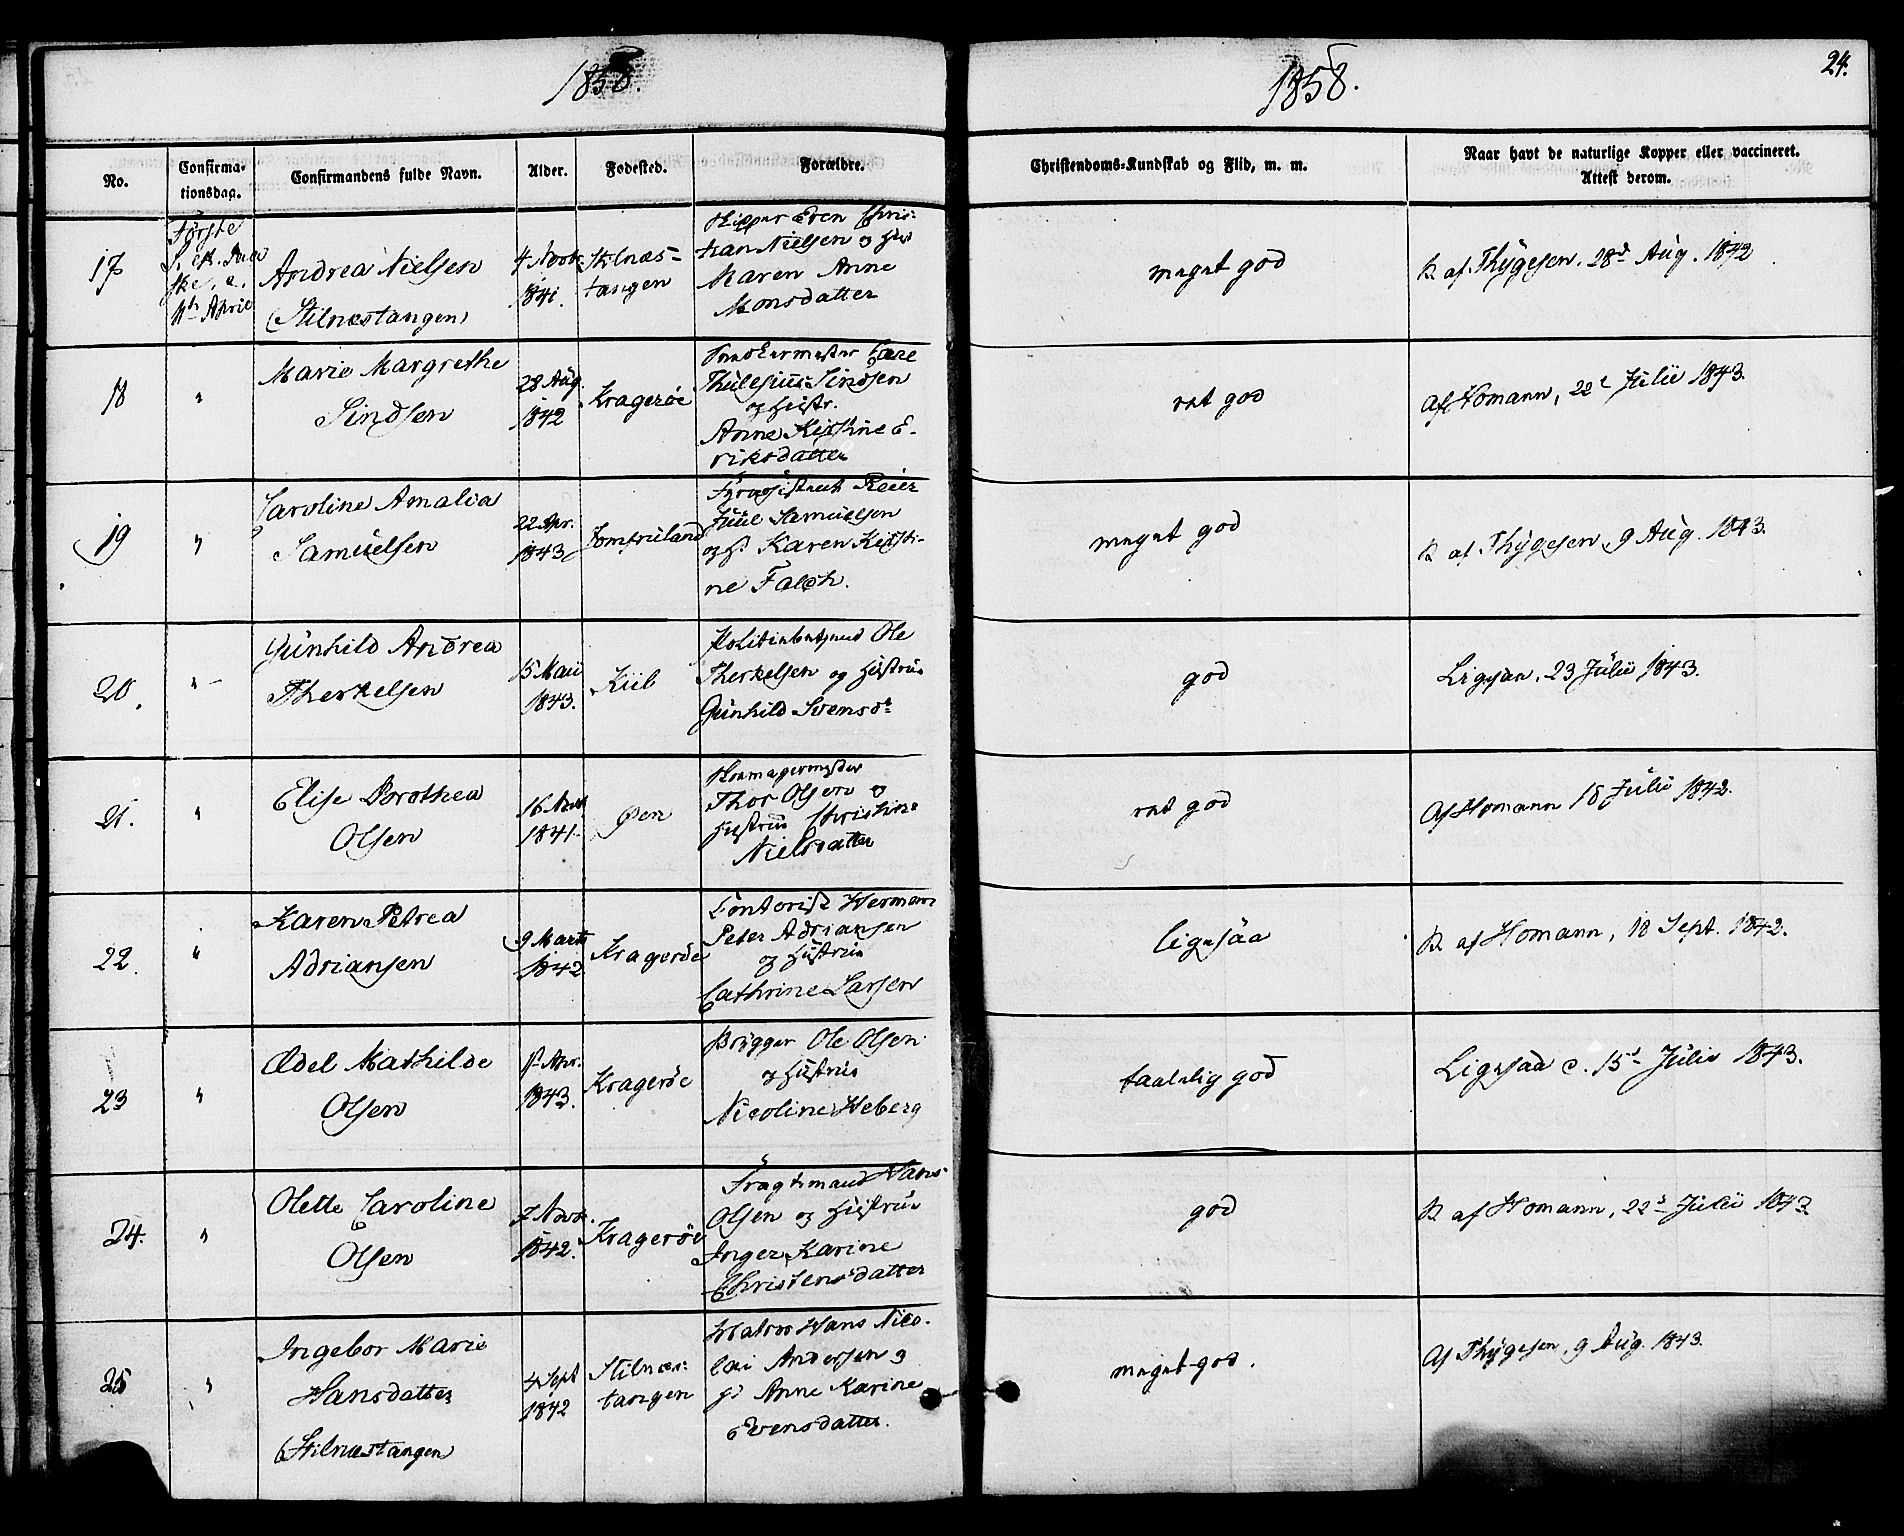 1858.
1858.
24.
No.
Confirma-
tionsdag.
Confirmandens fulde Navn.
Alder.
Fødested.
Forældre.
Christendoms-Kundskab og Flid, m. m.
Naar havt de naturlige Kopper eller vaccineret.
Attest derom.
17
Første
S. e. Paa
ske, e.
11te April
Andrea Nielsen
(Stilnæstangen)
4 Novbr.
1841.
Stilnæs-
tangen
Skipper Even Chris-
tian Nielsen og Hst
Maren Anne
Monsdatter
meget god
B. af Thygesen. 28de Aug. 1842.
18
"
Marie Margrethe
Sindsen
28 Aug.
1842
Kragerøe
Snedkermester Care
Thulesius Sindsen
og Hustr.
Anne Kirstine E-
riksdatter
ret god
Af Homann, 22de Julii 1843.
19
"
Caroline Amalia
Samuelsen
22 Apr.
1843
Jomfruland
Fyrassistent Reier
Juul Samuelsen
og H. Karen Kirsti-
ne Falch.
meget god
B. af Thygesen, 9 Aug. 1843.
20.
"
Gunhild Andrea
Therkelsen
15 Maii
1843.
Kiil
Politiebetjent Ole
Therkelsen og Hustrue
Gunhild Svensdr
god
Ligesaa, 23 Julii 1843.
21.
"
Elise Dorothea
Olsen
16 Novbr
1841.
Øen
Skomagermester
Thor Olsen og
Hustrue Christine
Nielsdatter
ret god
Af Homann 18 Julii 1842.
22.
"
Karen Petrea
Adriansen
9 Marts
1842
Kragerøe
Contorist Herman
Peter Adriansen
og Hustrue
Cathrine Larsen
ligesaa
B. af Homann, 18 Sept. 1842.
23
"
Ædel Mathilde
Olsen
1ste Apr.
1843.
Kragerøe
Brygger Ole Olsen
og Hustrue
Nicoline Heberg
taalelig god
Ligesaa d. 15de Julii 1843.
24.
"
Olette Caroline
Olsen
7 Novbr.
1842.
Kragerøe
Fragtmand Hans
Olsen og Hustrue
Inger Karine
Christensdatter
god
B. af Homann, 22de Julii 1843
25
"
Ingebor Marie
Hansdatter
(Stilnæstangen
4 Sept
1842
Stilnæs-
tangen
Matros Hans Nico-
lai Andersen og
H. Anne Karine
Evensdatter.
meget god.
Af Thygesen, 9 Aug. 1843.